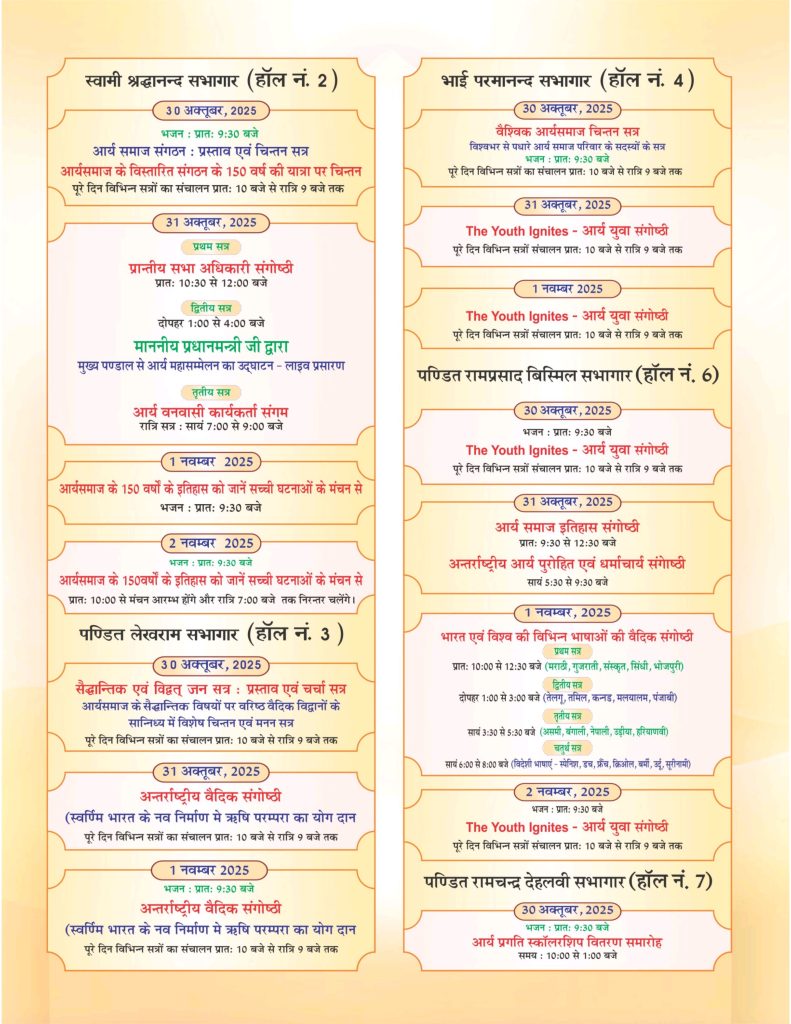 स्वामी श्रद्धानन्द सभागार (हॉल नं. 2)
30 अक्तूबर, 2025
भजन : प्रात: 9:30 बजे
आर्य समाज संगठन : प्रस्ताव एवं चिन्तन सत्र
आर्यसमाज के विस्तारित संगठन के 150 वर्ष की यात्रा पर चिन्तन
पूरे दिन विभिन्न सत्रों का संचालन प्रात: 10 बजे से रात्रि 9 बजे तक
31 अक्तूबर, 2025
प्रथम सत्र
प्रान्तीय सभा अधिकारी संगोष्ठी
प्रात: 10:30 से 12:00 बजे
द्वितीय सत्र
दोपहर 1:00 से 4:00 बजे
माननीय प्रधानमन्त्री जी द्वारा
मुख्य पण्डाल से आर्य महासम्मेलन का उद्घाटन – लाइव प्रसारण
तृतीय सत्र
आर्य वनवासी कार्यकर्ता संगम
रात्रि सत्र : सायं 7:00 से 9:00 बजे
1 नवम्बर 2025
आर्यसमाज के 150 वर्षों के इतिहास को जानें सच्ची घटनाओं के मंचन से
भजन : प्रात: 9:30 बजे
2 नवम्बर 2025
भजन : प्रात: 9:30 बजे
आर्यसमाज के 150वर्षों के इतिहास को जानें सच्ची घटनाओं के मंचन से
प्रात: 10:00 से मंचन आरम्भ होंगे और रात्रि 7:00 बजे तक निरन्तर चलेंगे।
पण्डित लेखराम सभागार (हॉल नं. 3 )
30 अक्तूबर, 2025
सैद्धान्तिक एवं विद्वत् जन सत्र : प्रस्ताव एवं चर्चा सत्र
आर्यसमाज के सैद्धान्तिक विषयों पर वरिष्ठ वैदिक विद्वानों के
सान्निध्य में विशेष चिन्तन एवं मनन सत्र
पूरे दिन विभिन्न सत्रों का संचालन प्रात: 10 बजे से रात्रि 9 बजे तक
31 अक्तूबर, 2025
अन्तर्राष्ट्रीय वैदिक संगोष्ठी
(स्वर्णिम भारत के नव निर्माण मे ऋषि परम्परा का योग दान
पूरे दिन विभिन्न सत्रों संचालन प्रात: 10 बजे से रात्रि 9 बजे तक
1 नवम्बर 2025
भजन : प्रात: 9:30 बजे
अन्तर्राष्ट्रीय वैदिक संगोष्ठी
(स्वर्णिम भारत के नव निर्माण मे ऋषि परम्परा का योग दान
पूरे दिन विभिन्न सत्रों संचालन प्रात: 10 बजे से रात्रि 9 बजे तक
भाई परमानन्द सभागार (हॉल नं. 4 )
30 अक्तूबर, 2025
वैश्विक आर्यसमाज चिन्तन सत्र
विश्वभर से पधारे आर्य समाज परिवार के सदस्यों के सत्र
भजन : प्रात: 9:30 बजे
पूरे दिन विभिन्न सत्रों का संचालन प्रात: 10 बजे से रात्रि 9 बजे तक
31 अक्तूबर, 2025
The Youth Ignites - आर्य युवा संगोष्ठी
पूरे दिन विभिन्न सत्रों संचालन प्रात: 10 बजे से रात्रि 9 बजे तक
1 नवम्बर 2025
The Youth Ignites - आर्य युवा संगोष्ठी
पूरे दिन विभिन्न सत्रों संचालन प्रात: 10 बजे से रात्रि 9 बजे तक
पण्डित रामप्रसाद बिस्मिल सभागार (हॉल नं. 6)
30 अक्तूबर, 2025
भजन : प्रात: 9:30 बजे
The Youth Ignites - आर्य युवा संगोष्ठी
पूरे दिन विभिन्न सत्रों संचालन प्रात: 10 बजे से रात्रि 9 बजे तक
31 अक्तूबर, 2025
आर्य समाज इतिहास संगोष्ठी
प्रात: 9:30 से 12:30 बजे
अन्तर्राष्ट्रीय आर्य पुरोहित एवं धर्माचार्य संगोष्ठी
सायं 5:30 से 9:30 बजे
1 नवम्बर, 2025
भारत एवं विश्व की विभिन्न भाषाओं की वैदिक संगोष्ठी
प्रथम सत्र
प्रात: 10:00 से 12:30 बजे (मराठी, गुजराती, संस्कृत, सिंधी, भोजपुरी)
द्वितीय सत्र
दोपहर 1:00 से 3:00 बजे (तेलगू, तमिल, कन्नड, मलयालम, पंजाबी)
तृतीय सत्र
सायं 3:30 से 5:30 बजे (असमी, बंगाली, नेपाली, उड़ीया, हरियाणवी)
चतुर्थ सत्र
सायं 6:00 से 8:00 बजे (विदेशी भाषाएं - स्पेनिश, डच, फ्रैंच, क्रिओल, बर्मी, उर्दू, सूरीनामी)
2 नवम्बर, 2025
भजन : प्रात: 9:30 बजे
The Youth Ignites - आर्य युवा संगोष्ठी
पूरे दिन विभिन्न सत्रों संचालन प्रात: 10 बजे से रात्रि 9 बजे तक
पण्डित रामचन्द्र देहलवी सभागार (हॉल नं. 7)
30 अक्तूबर, 2025
भजन : प्रात: 9:30 बजे
आर्य प्रगति स्कॉलरशिप वितरण समारोह
समय : 10:00 से 1:00 बजे